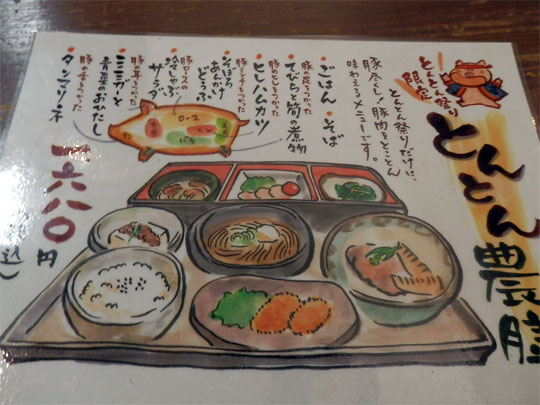 とんとん祭り
限定
とんとん農膳
豚尽くし!豚肉をとことん
味わえるメニューです。
とんとん祭りだけに、
・ごはん・そば
豚の足をつかった
・てびちと筍の煮物
豚のももをつかった
・ヒレハムカツ
豚ミンチをつかった
・そぼろあんかけどうふ
豚ロースの
・冷しゃぶサラダ
豚の耳をつかった
・ミミガーと青菜のおひたし
豚の舌をつかった
・タンマリーネ
ロース
バラ
一六八〇円
込)